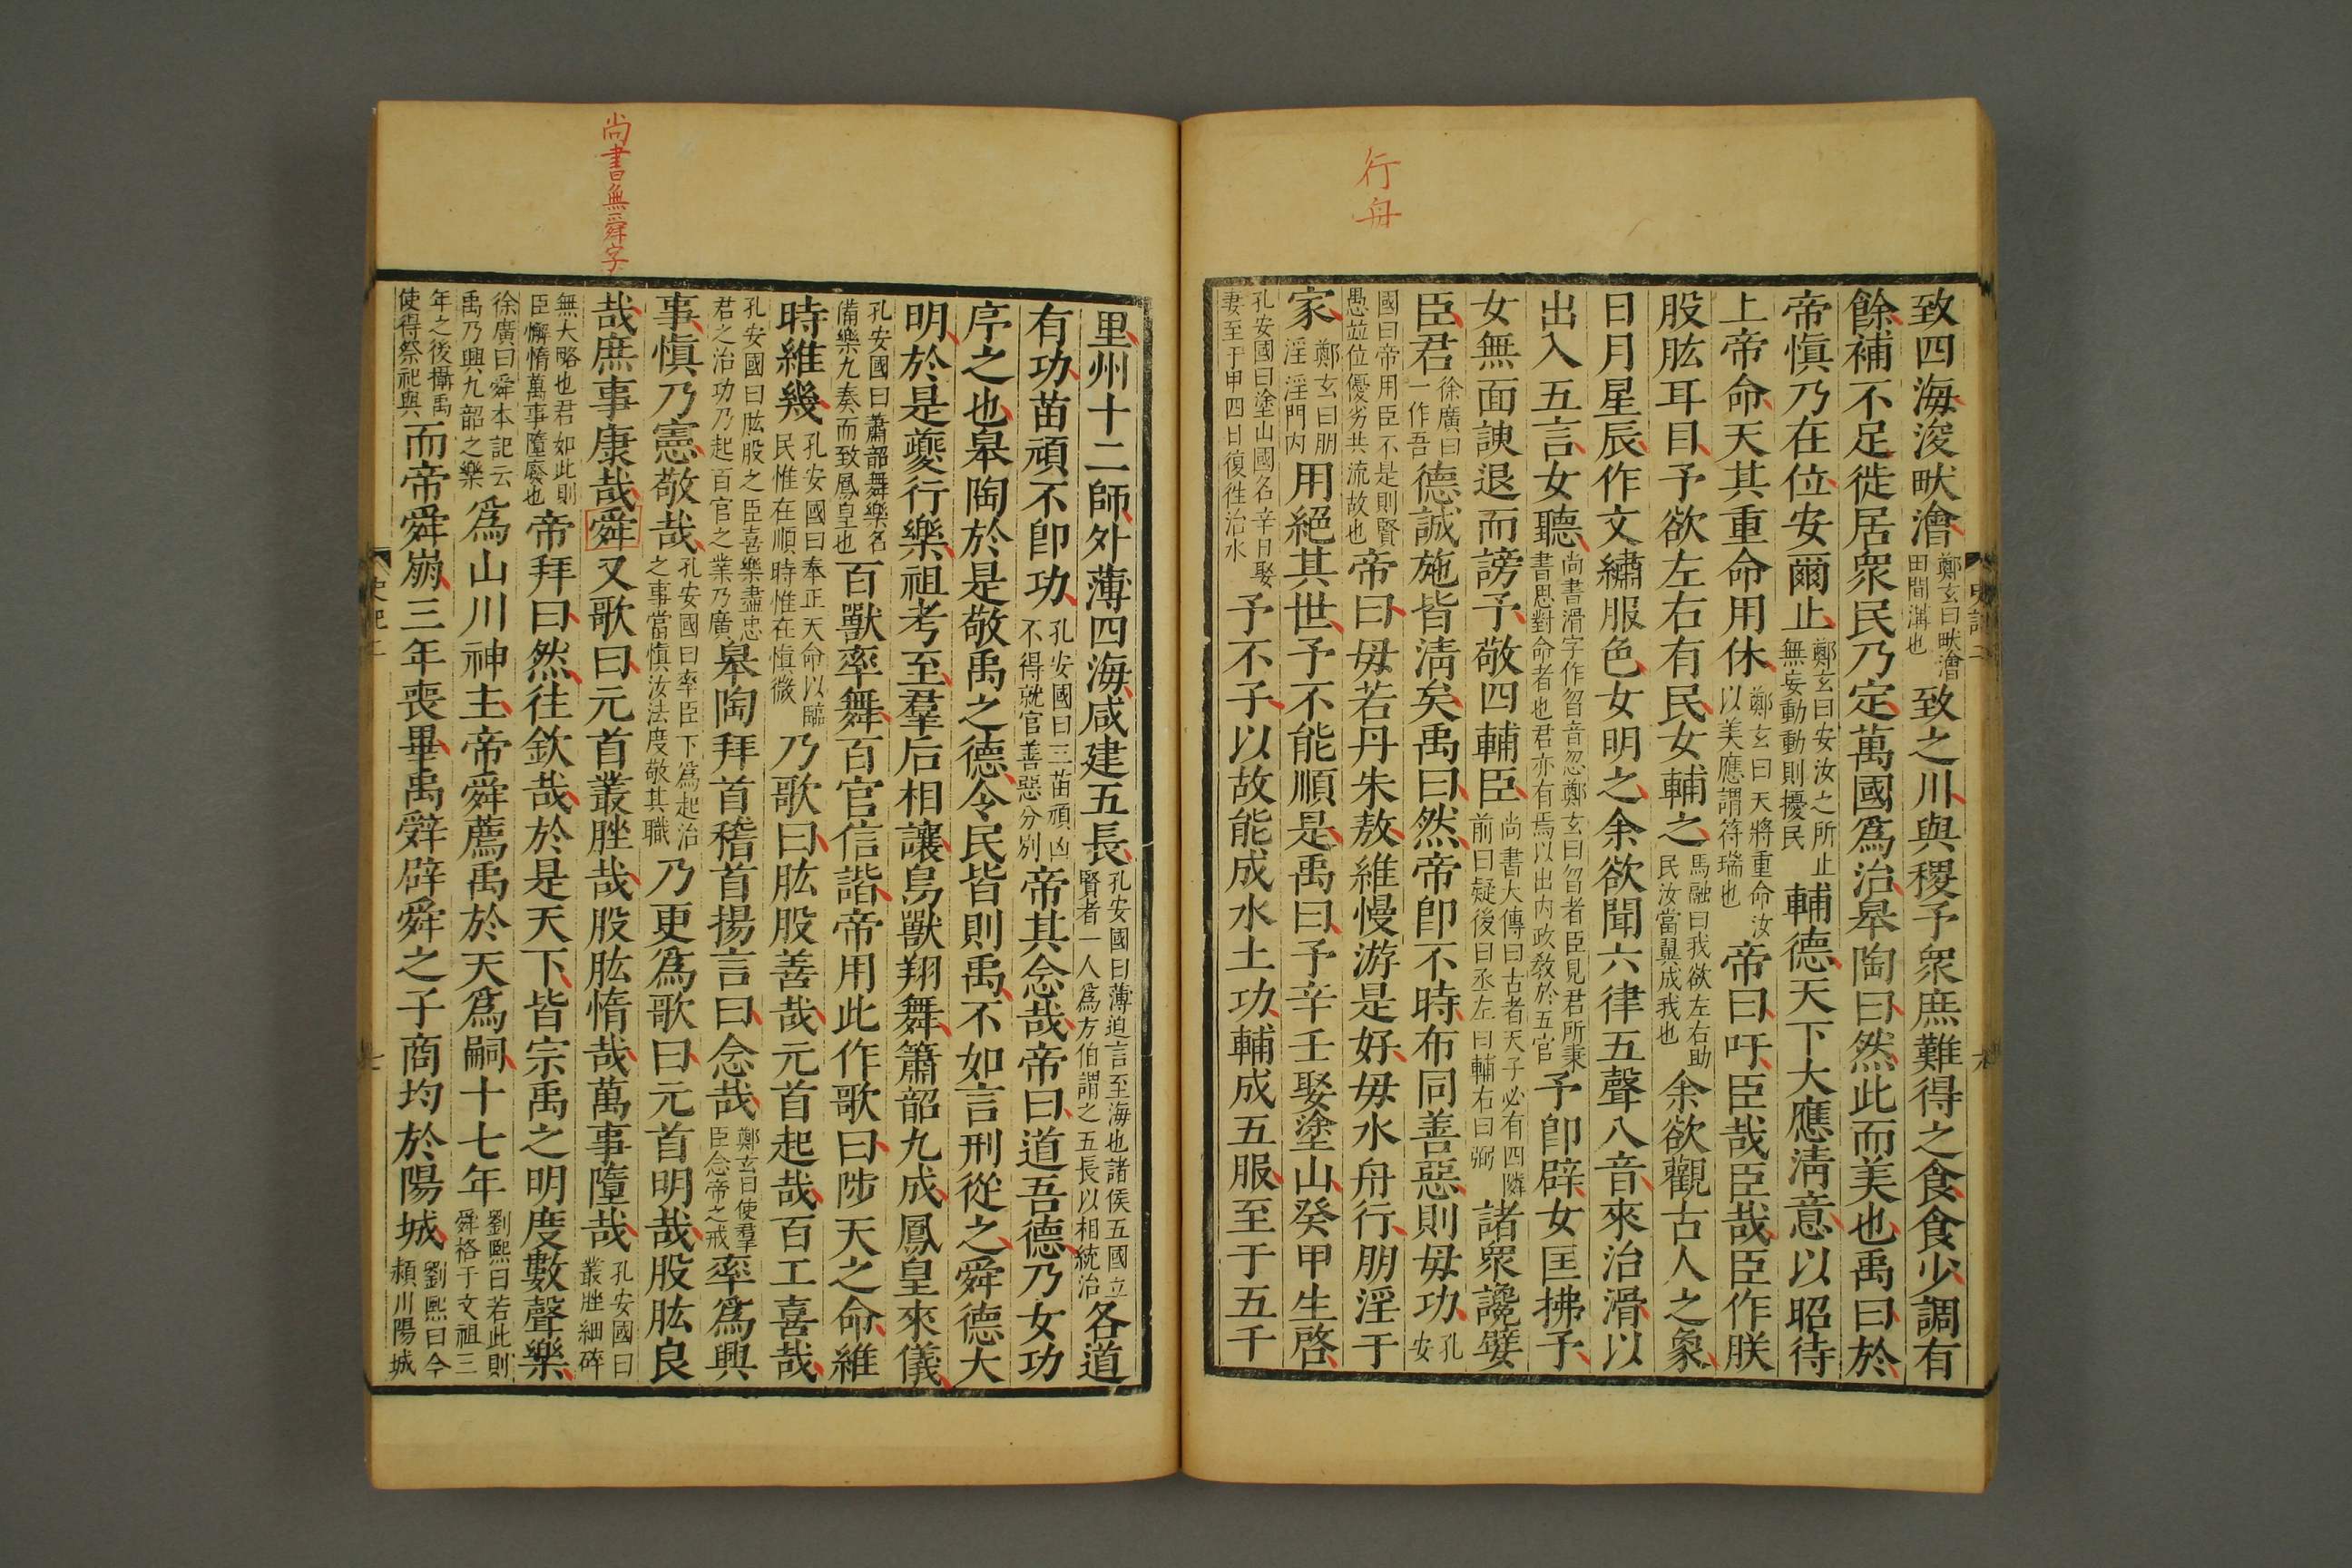 行舟
致四海浚畎澮鄭玄曰畎澮田間溝也致之川與稷予衆庶難得之食食少調有
餘補不足徙居衆民乃定萬國爲治皋陶曰然此而美也禹曰於
帝愼乃在位安爾止鄭玄曰安汝之所止無妄動動則擾民輔德天下大應淸意以昭待
上帝命天其重命用休鄭玄曰天將重命汝以美應謂符瑞也帝曰吁臣哉臣哉臣作朕
股肱耳目予欲左右有民女輔之馬融曰我欲左右助民汝當翼成我也余欲觀古人之象
日月星辰作文繡服色女明之余欲聞六律五聲八音來治滑以
出入五言女聽尚書滑字作曶音忽鄭玄曰曶者臣見君所秉書思對命者也君亦有焉以出内政敎於五官予卽辟女匡拂予
女無面諛退而謗予敬四輔臣尚書大傳曰古者天子必有四隣前曰疑後曰丞左曰輔右曰弼諸衆讒嬖
臣君徐廣曰一作吾德誠施皆淸矣禹曰然帝卽不時布同善惡則毋功孔安
國曰帝用臣不是則賢愚並位優劣共流故也帝曰毋若丹朱敖維慢游是好毋水舟行朋淫于
家鄭玄曰朋淫淫門内用絕其世予不能順是禹曰予辛壬娶塗山癸甲生啓
孔安國曰塗山國名辛日娶妻至于甲四日復往治水予不子以故能成水土功輔成五服至于五千
史記二
六
尚書無舜字
里州十二師外薄四海咸建五長孔安國曰薄迫言至海也諸侯五國立賢者一人爲方伯謂之五長以相統治各道
有功苗頑不卽功孔安國曰三苗頑凶不得就官善惡分別帝其念哉帝曰道吾德乃女功
序之也皋陶於是敬禹之德令民皆則禹不如言刑從之舜德大
明於是夔行樂祖考至羣后相讓鳥獸翔舞簫韶九成鳳皇來儀
孔安國曰蕭韶舞樂名備樂九奏而致鳳皇也百獸率舞百官信諧帝用此作歌曰陟天之命維
時維幾孔安國曰奉正天命以臨民惟在順時惟在愼微乃歌曰肱股善哉元首起哉百工喜哉
孔安國曰肱股之臣喜樂盡忠君之治功乃起百官之業乃廣皋陶拜首稽首揚言曰念哉鄭玄曰使羣臣念帝之戒率爲興
事愼乃憲敬哉孔安國曰率臣下爲起治之事當愼汝法度敬其職乃更爲歌曰元首明哉股肱良
哉庶事康哉舜又歌曰元首叢脞哉股肱惰哉萬事墮哉孔安國曰叢脞細碎
無大略也君如此則臣懈惰萬事墮廢也帝拜曰然往欽哉於是天下皆宗禹之明度數聲樂
徐廣曰舜本記云禹乃興九韶之樂爲山川神主帝舜薦禹於天爲嗣十七年劉熙曰若此則舜格于文祖三
年之後攝禹使得祭祀與而帝舜崩三年喪畢禹辭辟舜之子商均於陽城劉熙曰今潁川陽城
史記二
七